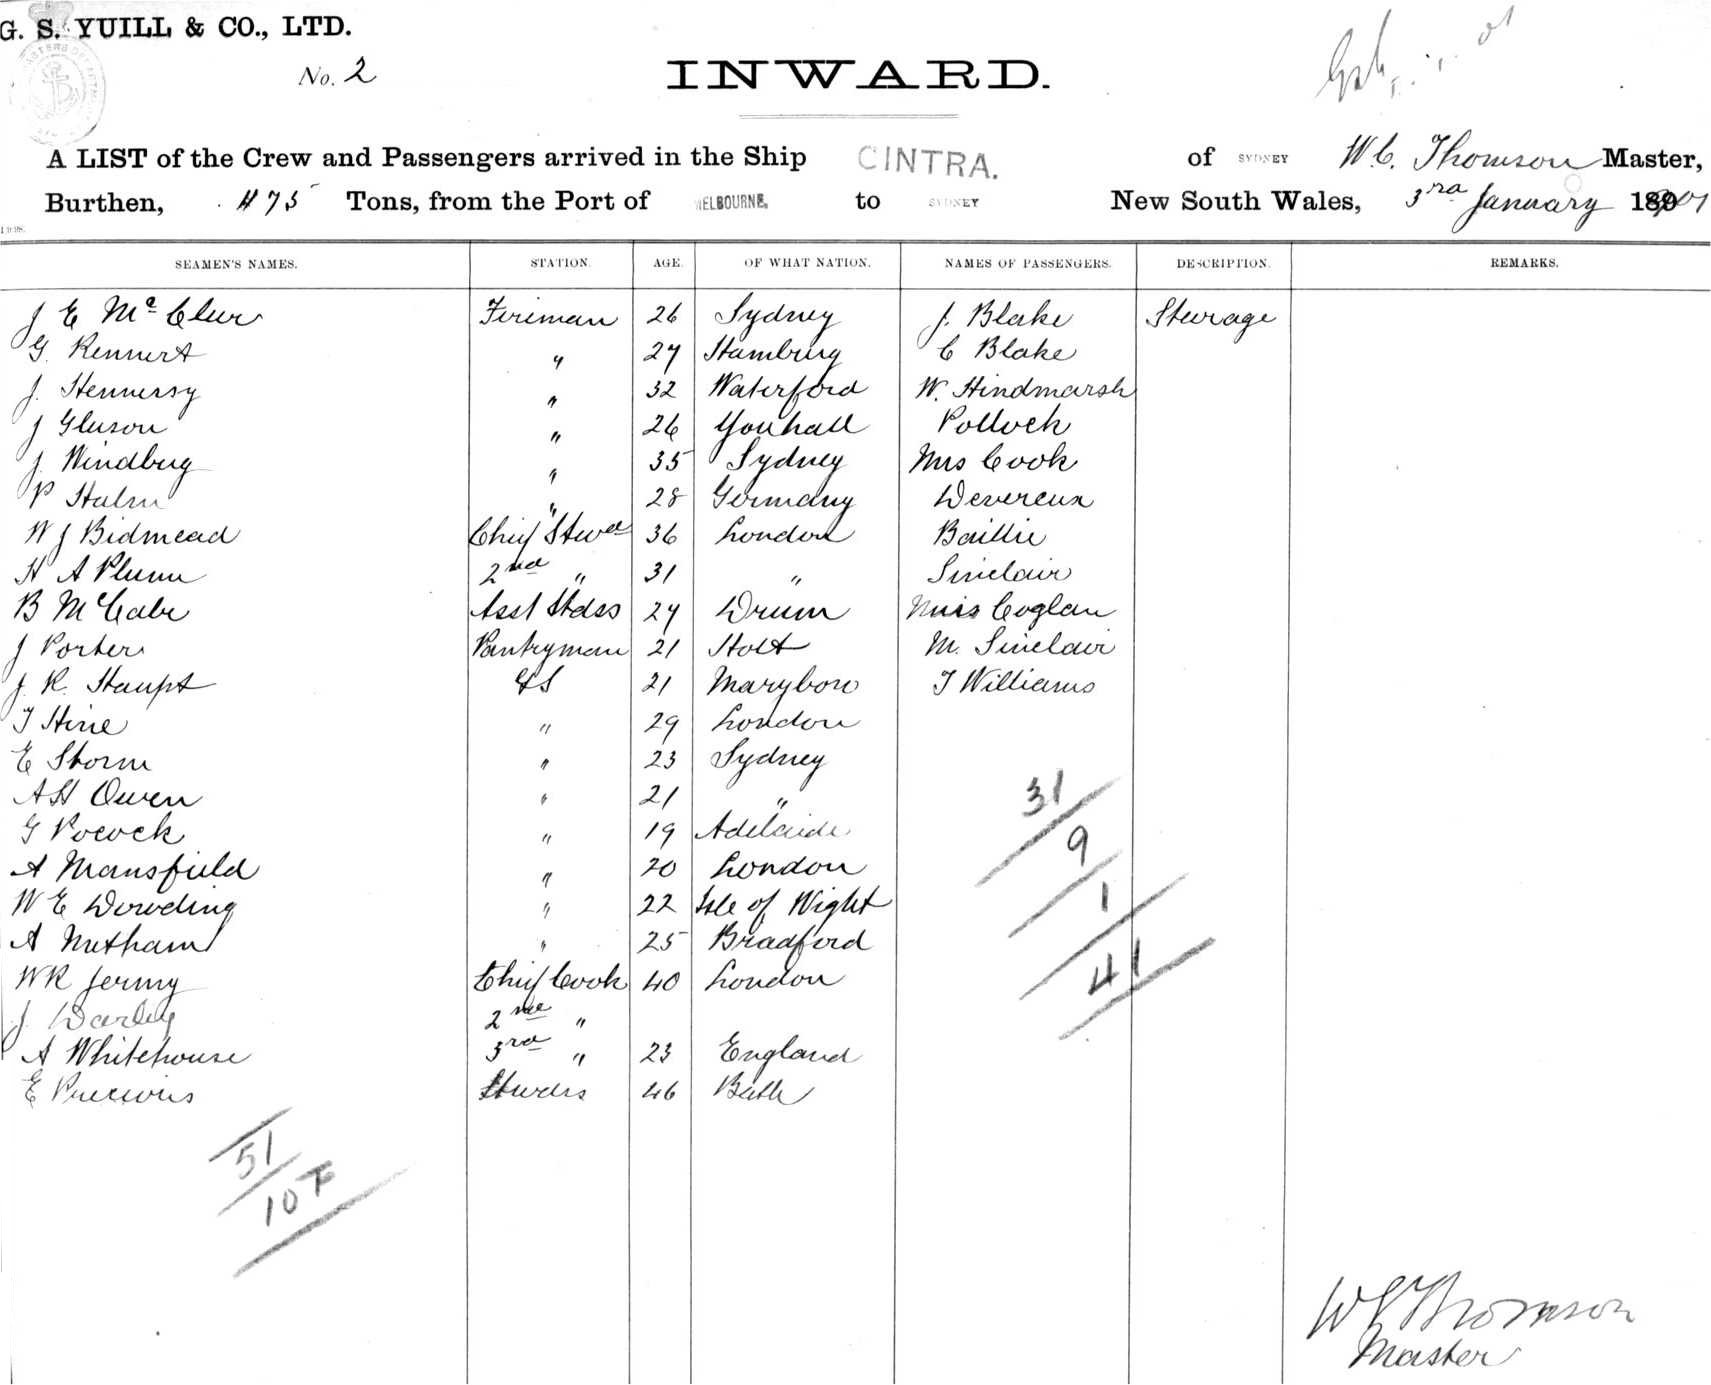 G. S. YUILL & CO., LTD.
No. 2
INWARD.
A LIST of the Crew and Passengers arrived in the Ship CINTRA. of SYDNEY W. C. Thomson Master,
Burthen, 1175 Tons, from the Port of MELBOURNE, to SYDNEY New South Wales, 3rd January 1901
SEAMEN'S NAMES. STATION. AGE. OF WHAT NATION. NAMES OF PASSENGERS. DESCRIPTION. REMARKS.
J E McClur Fireman 26 Sydney J. Blake Sturage
G. Rennert " 27 Hamburg C Blake
J. Hennessy " 32 Waterford W. Hindmarsh
J Gleeson " 26 Youhall Pollock
J. Windberg " 35 Sydney Mrs Cook
P Halm " 28 Germany Devereux
W J Bidmead Chief Stwd 36 London Baillie
H A Plum 2nd " 31 " Sinclair
B McCabe Asst Stdss 27 Drum Miss Coglan
J Porter Pantryman 21 Holt M. Sinclair
J. R. Haupt GS 21 Marybon T Williams
T Hine " 29 London
E Storm " 23 Sydney
A H Owen " 21 "
G Pocock " 19 Adelaide
A Mansfield " 20 London
W E Dowding " 22 Isle of Wight
A Metham " 25 Bradford
W R Jermy Chief Cook 40 London
J. Darley 2nd "
A Whitehouse 3rd " 23 England
E Precious Stwdss 46 Bath
31
9
1
41
51
10 F
W C Thomson
Master